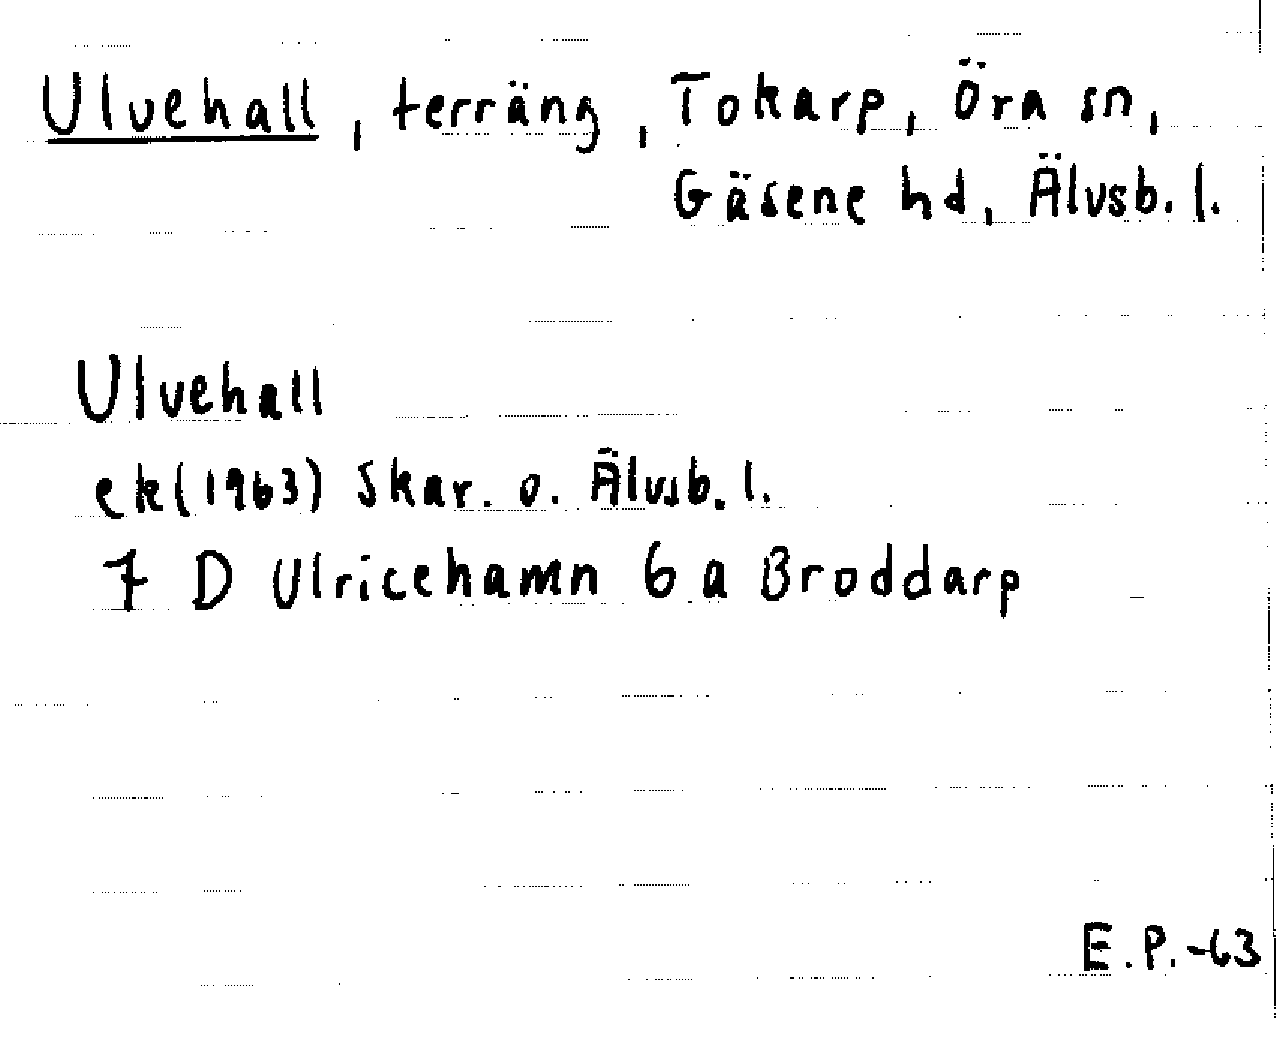 Ulvehall, terräng, Tokarp, Öra sn,
Gäsene hd, Älvsb. l.
Ulvehall
ek(1963) Skar. o. Älvsb. l.
7 D Ulricehamn 6 a Broddarp
E.P.-63